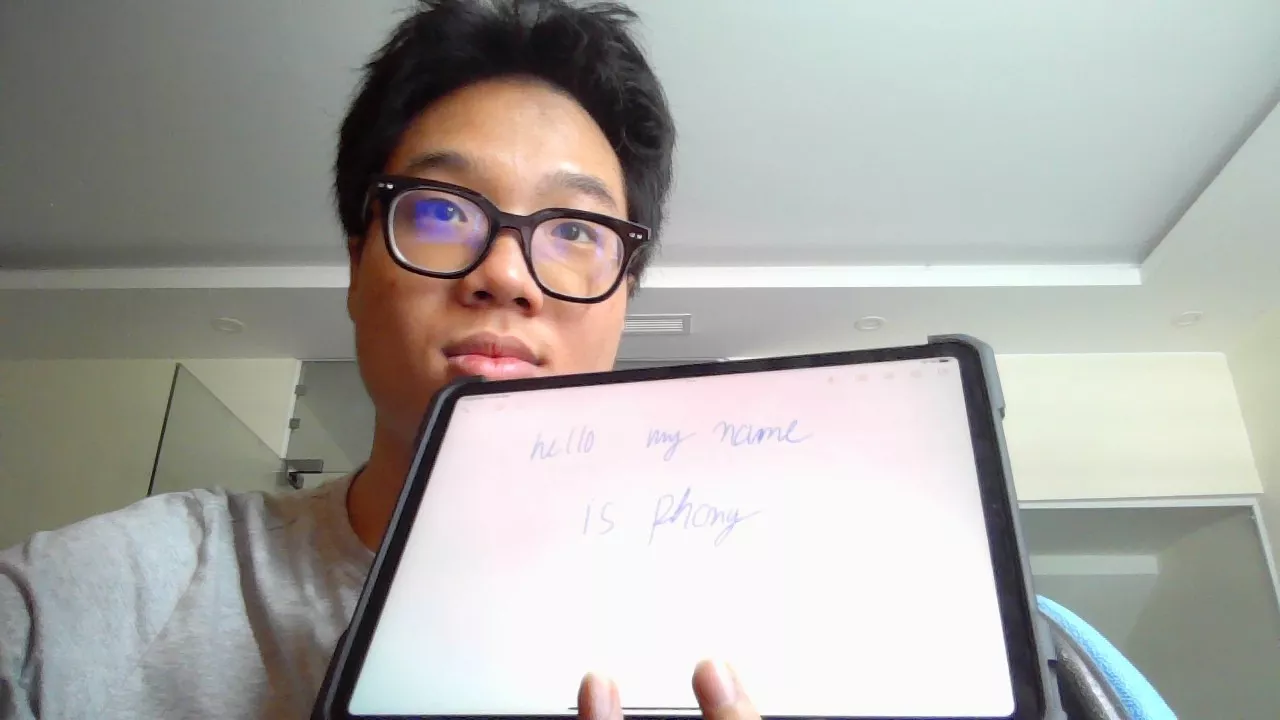 hello my name
is phony